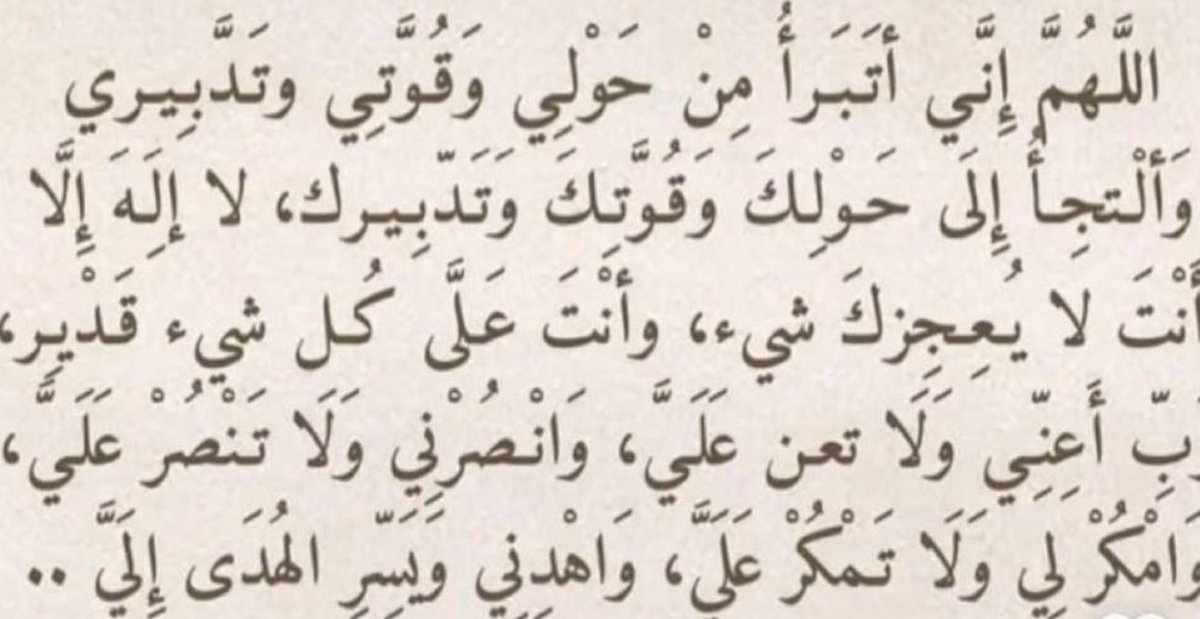 اللَّهُمَّ إِنَّي أتَبَرأُ مِنْ حَوْلِي وَقُوَّتِي وتَدَّبِيري
وَألْتجِأُ إِلَى حَولِكَ وَقُوَّتِكَ وَتَدّبِيرك، لا إِلَهَ إِلَّا
أَنْتَ لا يُعجِزكَ شيء، وأنْتَ عَلَّى كُل شيء قَدْيِر،
رَبِّ أَعِنِّي وَلَا تعن عَلَيَّ، وَانْصُرْنِي وَلَا تَنْصُرْ عَلَيَّ،
وَامْكُرْ لِي وَلَا تَمْكُرْ عَلَيَّ، وَاهْدِنِي وَيَسِّرِ الهُدَى إِلَيَّ ..